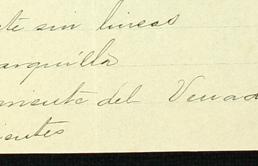 te sin lineas
arquilla
miento del Venad
ientes